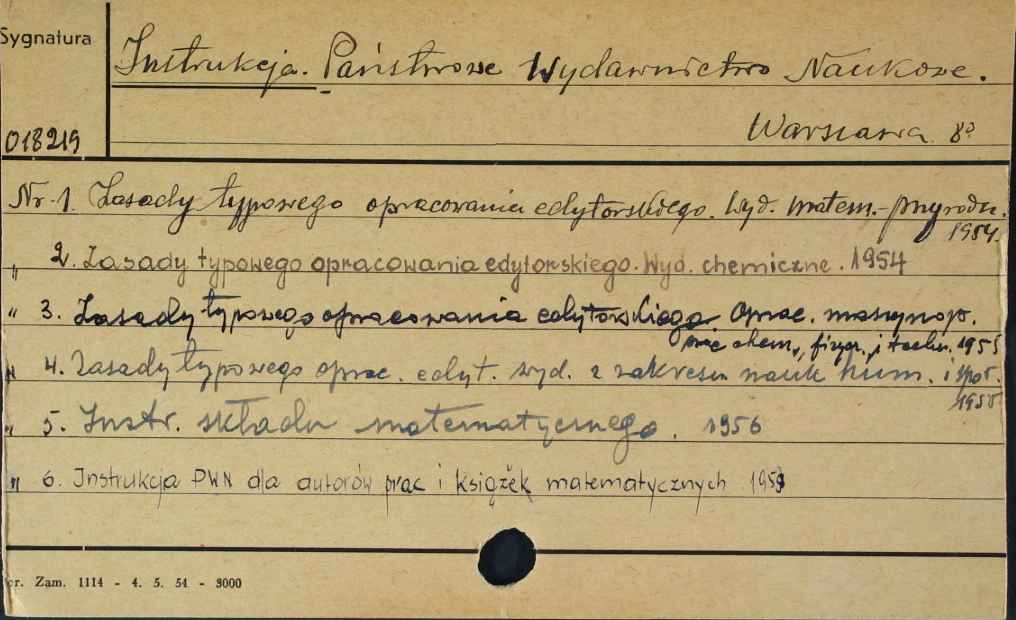 Sygnatura
Instrukcja. Państwowe Wydawnictwo Naukowe.
Warszawa 8°
018219
Nr. 1. Zasady typowego opracowania edytorskiego. Wyd. matem.-przyrodn.
1954.
" 2. Zasady typowego opracowania edytorskiego. Wyd. chemiczne. 1954
" 3. Zasady typowego opracowania edytorskiego Oprac. maszynop.
prac chem., fizycz. i techn. 1955
" 4. Zasady typowego oprac. edyt. wyd. z zakresu nauk hum. i społ.
1955
" 5. Instr. składu matematycznego. 1956
" 6. Instrukcja PWN dla autorów prac i książek matematycznych
r. Zam. 1114 - 4. 5. 54 - 3000